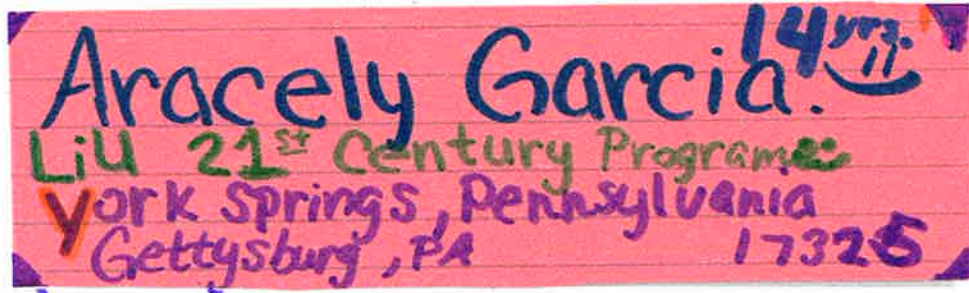 Aracely Garcia. 14 yrs.
LiU 21st Century Program
York Springs, Pennsylvania
Gettysburg, PA 17325